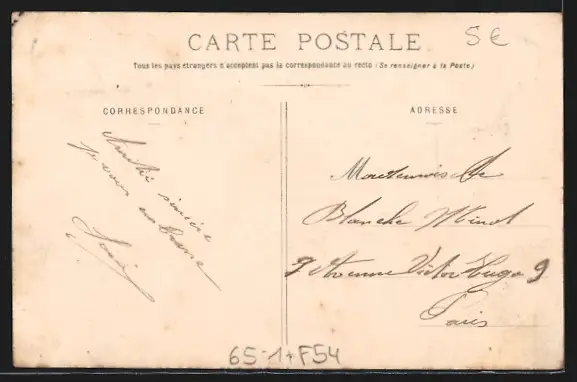 CARTE POSTALE
5€
Tous les pays étrangers n'acceptent pas la correspondance au recto (Se renseigner à la Poste)
CORRESPONDANCE
ADRESSE
Amitié sincère
je vous
Mademoiselle
Blanche Minot
9 Avenue Victor Hugo 9
Paris
65 1+F54